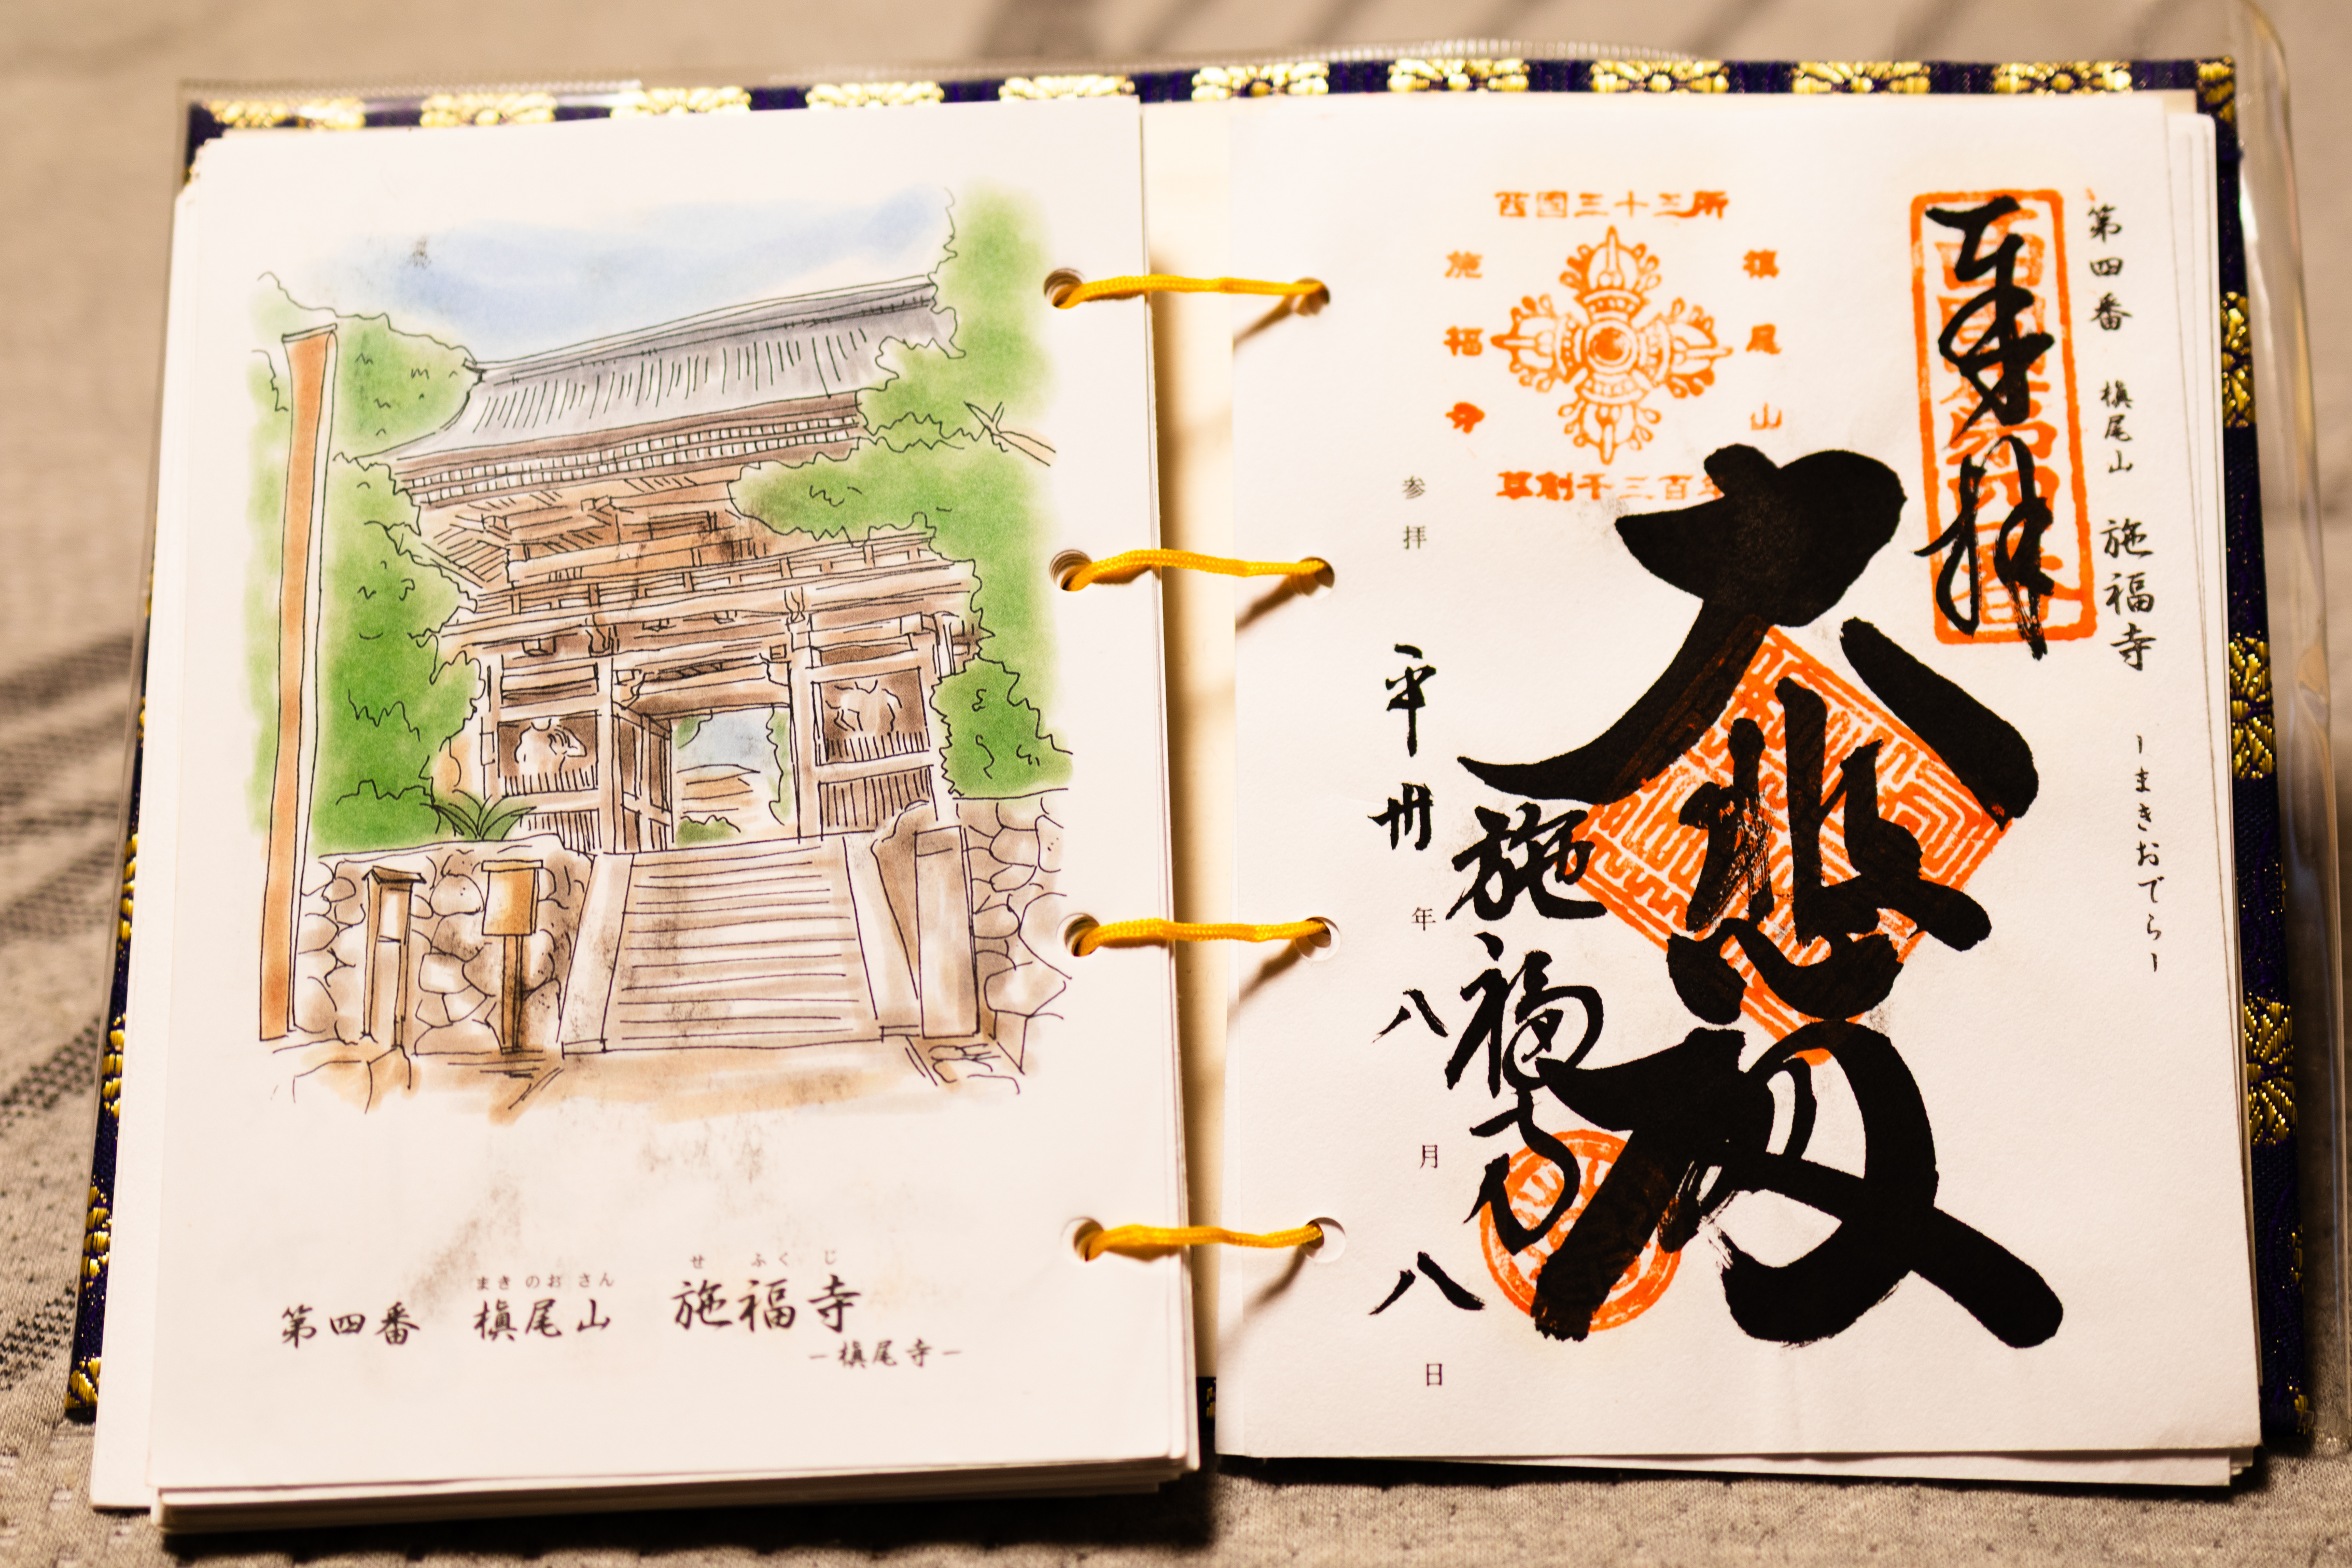 まきのおさん
せふくじ
第四番 槇尾山 施福寺
-槇尾寺-
第四番 槇尾山 施福寺 -まきおでら-
奉拝
西国三十三所
槇尾山
施福寺
草創千三百年
大悲殿
施福寺
参拝 平 卅 年 八 月 八 日